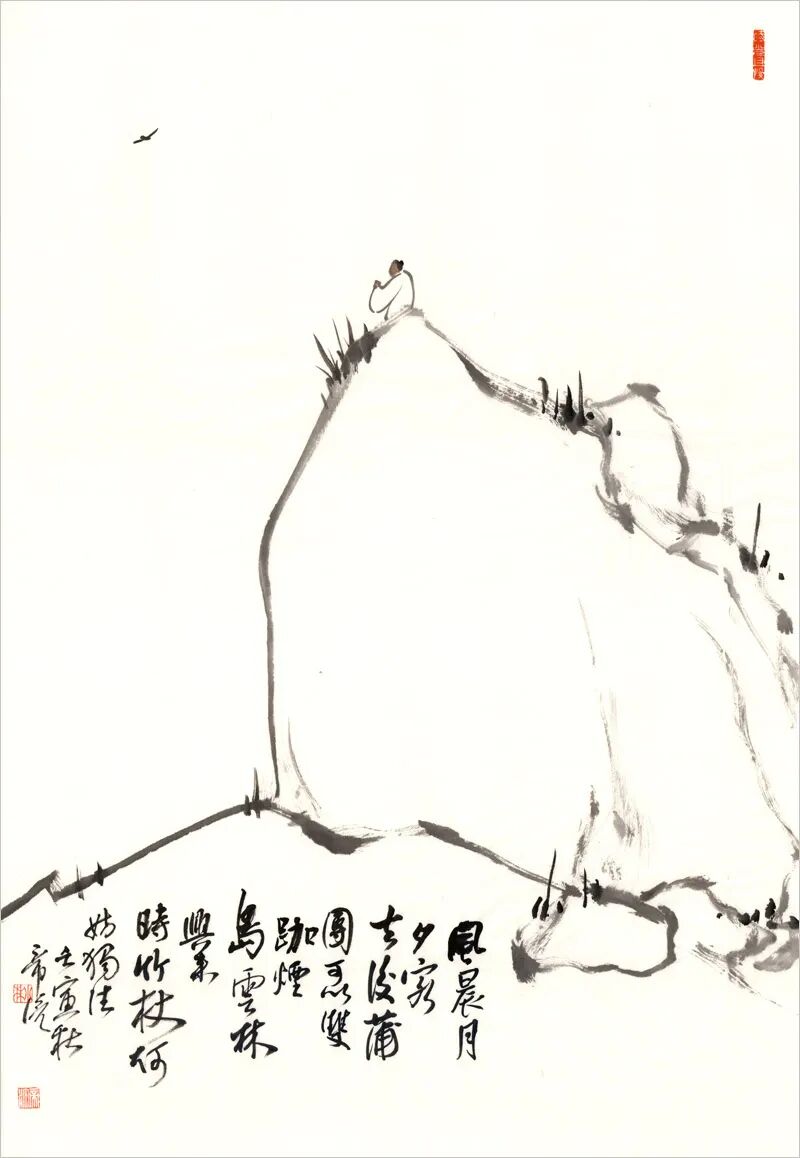 風晨月
夕客
去後蒲
團可以雙
跏煙
島雲林
興來
時竹杖何
妨獨往
壬寅秋